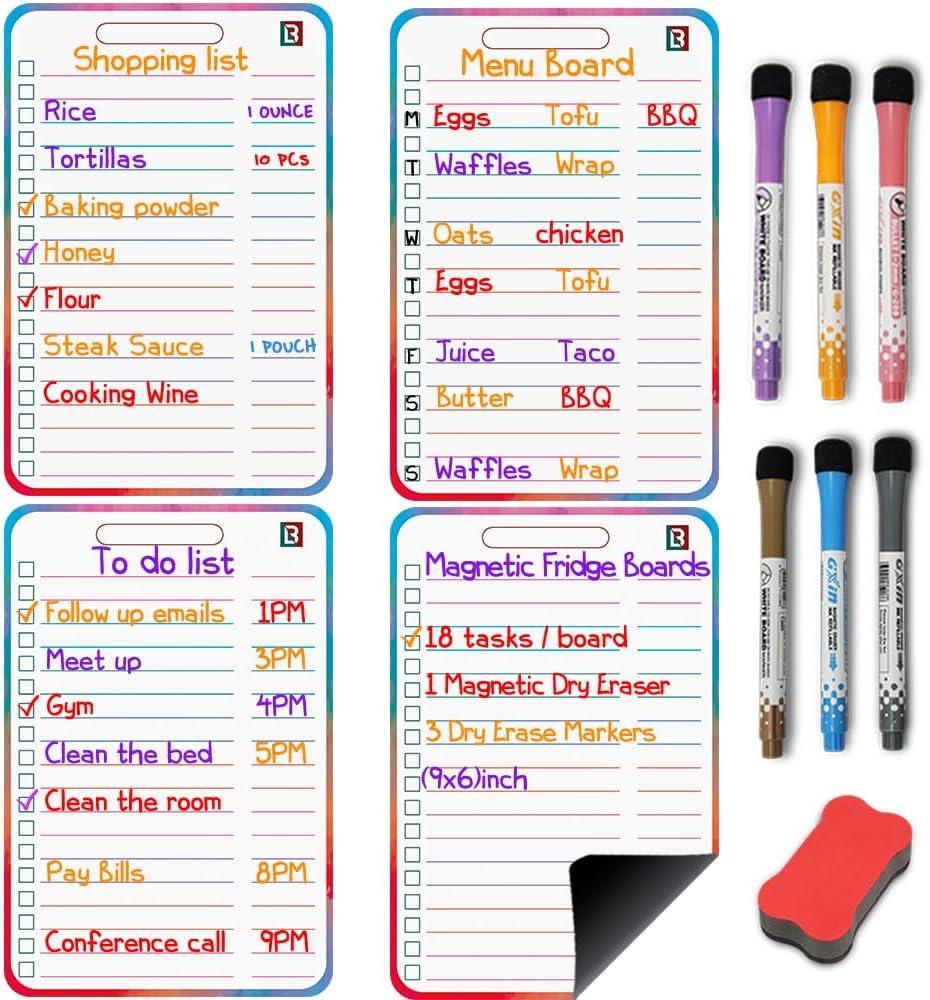 Shopping list
Rice 1 OUNCE
Tortillas 10 PCs
Baking powder
Honey
Flour
Steak Sauce 1 POUCH
Cooking Wine
Menu Board
M Eggs Tofu BBQ
T Waffles Wrap
W Oats chicken
T Eggs Tofu
F Juice Taco
S Butter BBQ
S Waffles Wrap
To do list
Follow up emails 1PM
Meet up 3PM
Gym 4PM
Clean the bed 5PM
Clean the room
Pay Bills 8PM
Conference call 9PM
Magnetic Fridge Boards
18 tasks / board
1 Magnetic Dry Eraser
3 Dry Erase Markers
(9x6)inch
WHITE BOARD
GXin
WHITE BOARD
WHITE BOARD
GXin
GXin